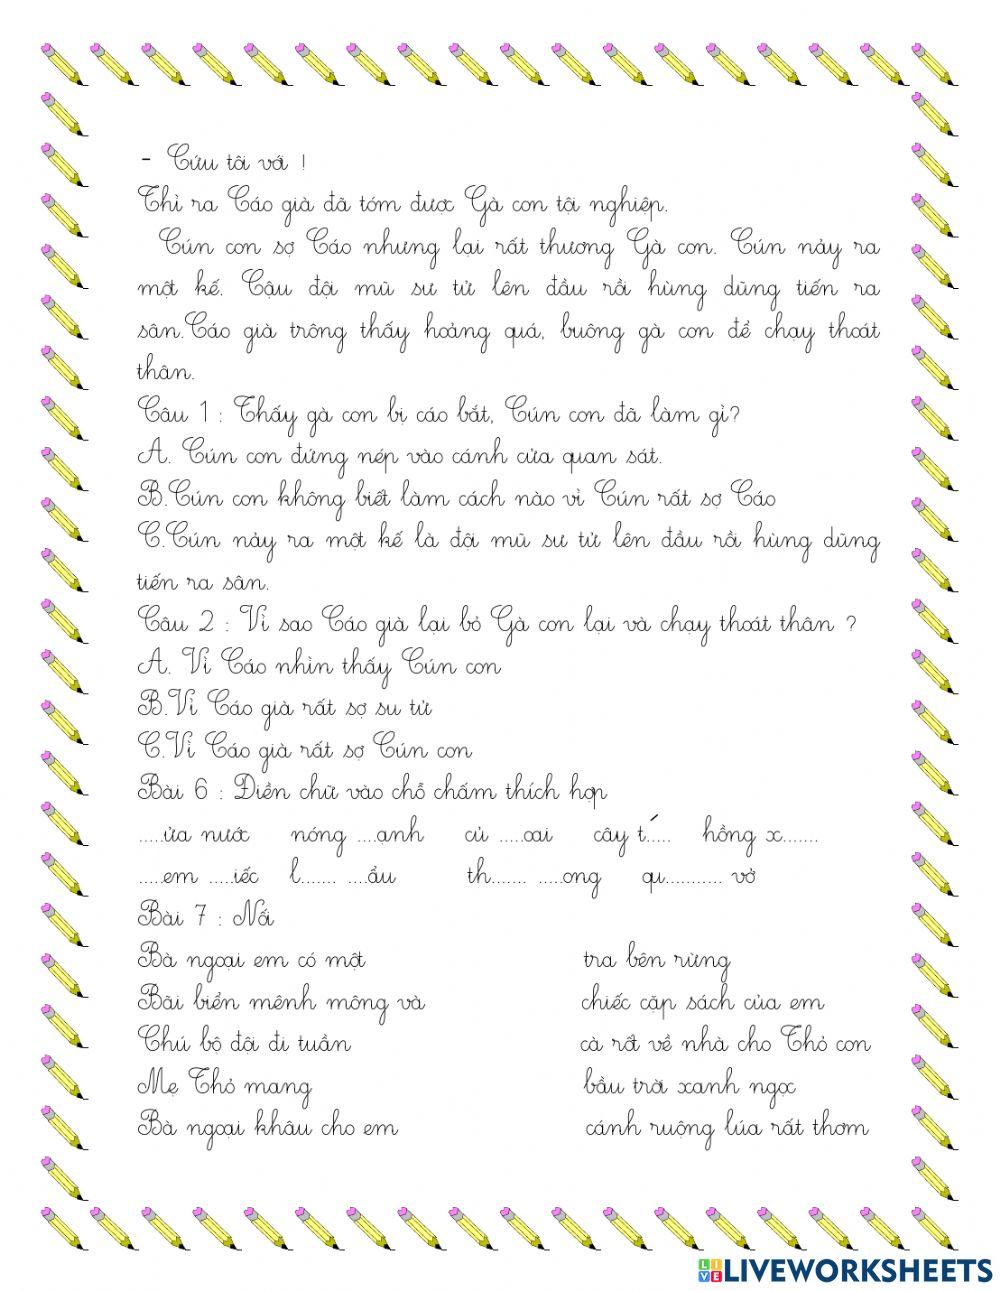 - Cứu tôi với !
Thì ra Cáo già đã tóm được Gà con tội nghiệp.
Cún con sợ Cáo nhưng lại rất thương Gà con. Cún nảy ra
một kế. Cậu đội mũ sư tử lên đầu rồi hùng dũng tiến ra
sân.Cáo già trông thấy hoảng quá, buông gà con để chạy thoát
thân.
Câu 1 : Thấy gà con bị cáo bắt, Cún con đã làm gì?
A. Cún con đứng nép vào cánh cửa quan sát.
B.Cún con không biết làm cách nào vì Cún rất sợ Cáo
C.Cún nảy ra một kế là đội mũ sư tử lên đầu rồi hùng dũng
tiến ra sân.
Câu 2 : Vì sao Cáo già lại bỏ Gà con lại và chạy thoát thân ?
A. Vì Cáo nhìn thấy Cún con
B.Vì Cáo già rất sợ su tử
C.Vì Cáo già rất sợ Cún con
Bài 6 : Điền chữ vào chỗ chấm thích hợp
.....ửa nước nóng ....ạnh củ .....oai cây t́..... hồng x.......
.....em .....iếc l....... ....ẩu th....... .....ong qu........... vở
Bài 7 : Nối
Bà ngoại em có một tra bên rừng
Bãi biển mênh mông và chiếc cặp sách của em
Chú bộ đội đi tuần cà rốt về nhà cho Thỏ con
Mẹ Thỏ mang bầu trời xanh ngọc
Bà ngoại khâu cho em cánh ruộng lúa rất thơm
LIVEWORKSHEETS